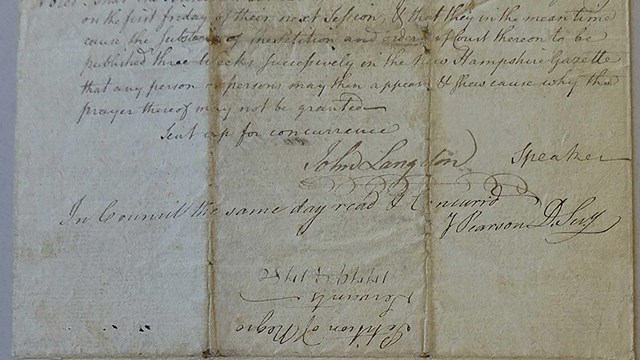 on the first friday of their next Session, & that they in the mean time
cause the substance of the Petition and order of Court thereon to be
published three Weeks successively in the New Hampshire Gazette
that any person or persons may then appear & shew cause why the
prayer thereof may not be granted
Sent up for concurrence
John Langdon Speaker
In Council the same day read & Concurrd
J Pearson D Secy
Petition of Negro
Servants